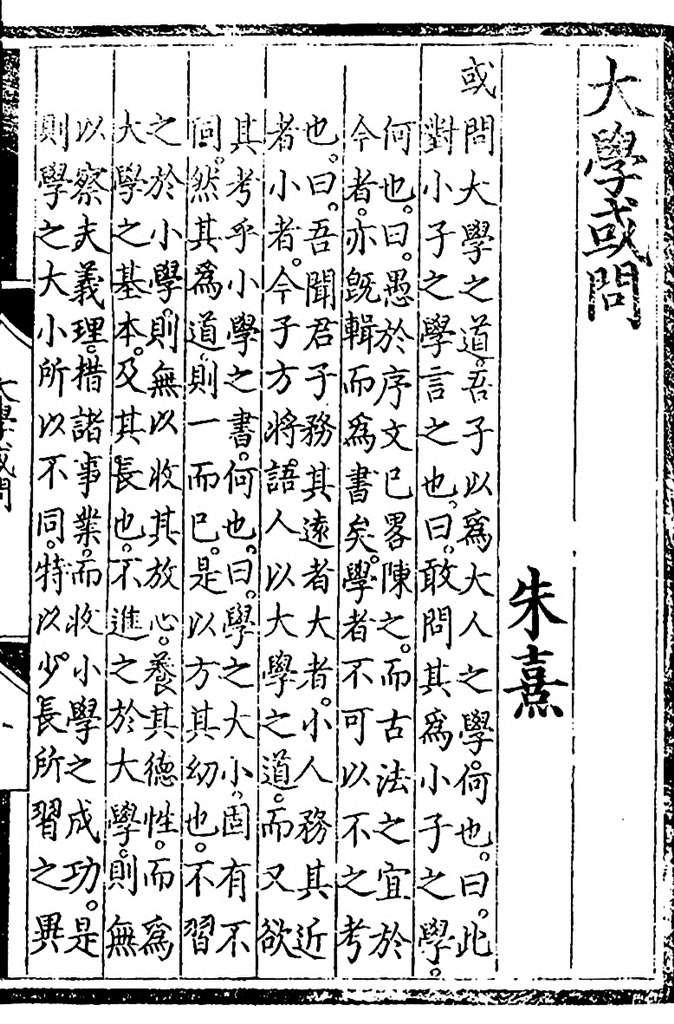 大學或問
朱熹
或問大學之道。吾子以爲大人之學。何也。曰。此
對小子之學言之也。曰。敢問其爲小子之學。
何也。曰。愚於序文已畧陳之。而古法之宜於
今者。亦旣輯而爲書矣。學者不可以不之考
也。曰。吾聞君子務其遠者大者。小人務其近
者小者。今子方將語人以大學之道。而又欲
其考乎小學之書。何也。曰。學之大小。固有不
同。然其爲道。則一而已。是以方其幼也。不習
之於小學。則無以收其放心。養其德性。而爲
大學之基本。及其長也。不進之於大學。則無
以察夫義理。措諸事業。而收小學之成功。是
則學之大小所以不同。特以少。長所習之異
大學或問
一